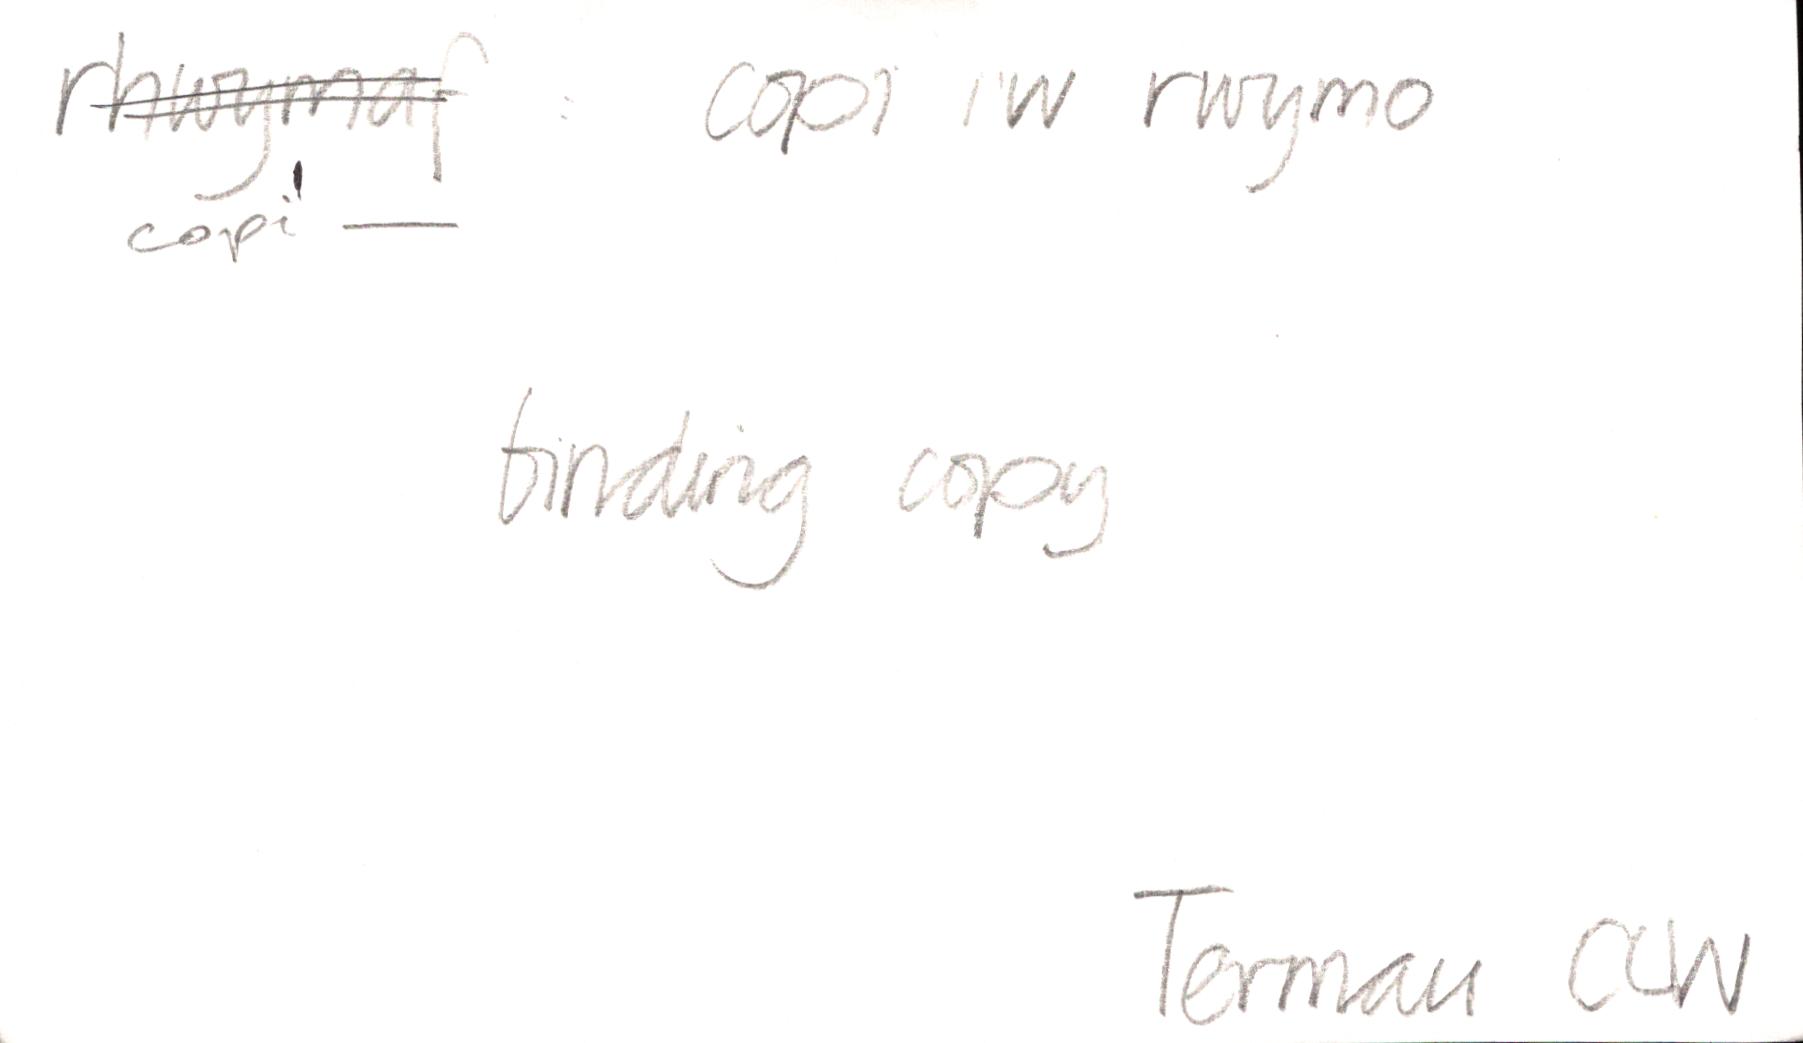 rhwymaf : copi i'w rwymo
copi —
binding copy
Termau CLW